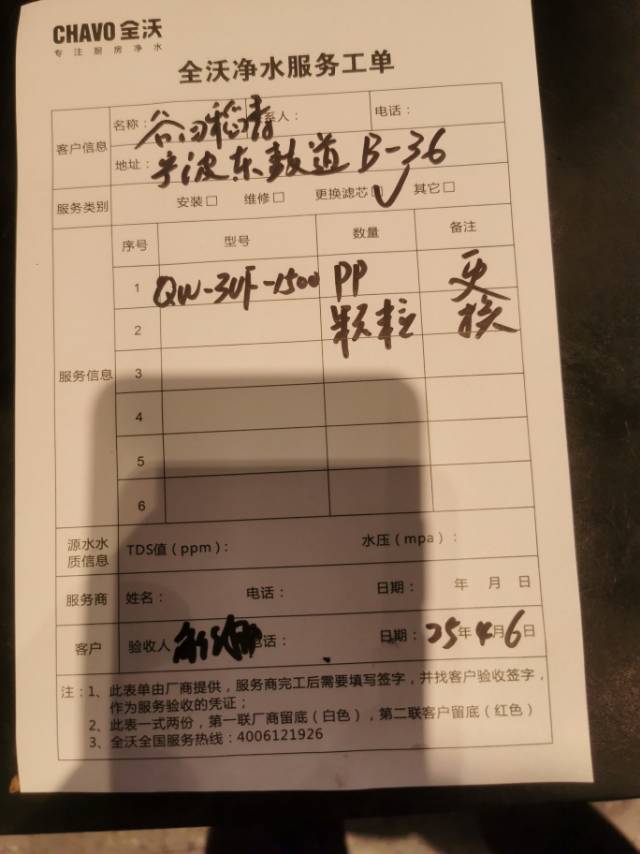 CHAVO 全沃
专注厨房净水
全沃净水服务工单
客户信息
名称：谷田稻香 系人： 电话：
地址：宁波东鼓道B-36
服务类别 安装□ 维修□ 更换滤芯☑ 其它□
服务信息
序号 型号 数量 备注
1 QW-3UF-1500 PP 更
2 颗粒 换
3
4
5
6
源水水质信息 TDS值（ppm）： 水压（mpa）：
服务商 姓名： 电话： 日期： 年 月 日
客户 验收人 电话： 日期：25年4月6日
注：1、此表单由厂商提供，服务商完工后需要填写签字，并找客户验收签字，
作为服务验收的凭证；
2、此表一式两份，第一联厂商留底（白色），第二联客户留底（红色）
3、全沃全国服务热线：4006121926